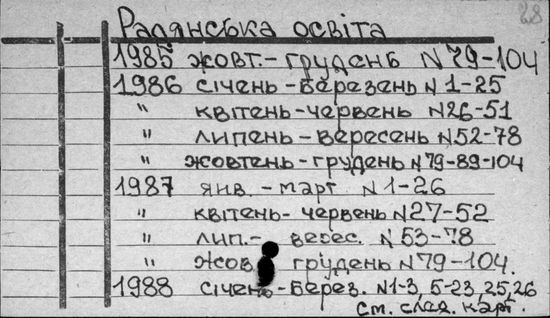 28
Радянська освіта
1985 жовт.-грудень N79-104
1986 січень-березень N1-25
" квітень-червень N26-51
" липень-вересень N52-78
" жовтень-грудень N79-89-104
1987 янв.-март N1-26
" квітень-червень N27-52
" лип.- верес. N53-78
" жов грудень N79-104.
1988 січень-берез. N1-3, 5-23, 25, 26
См. след. карт.